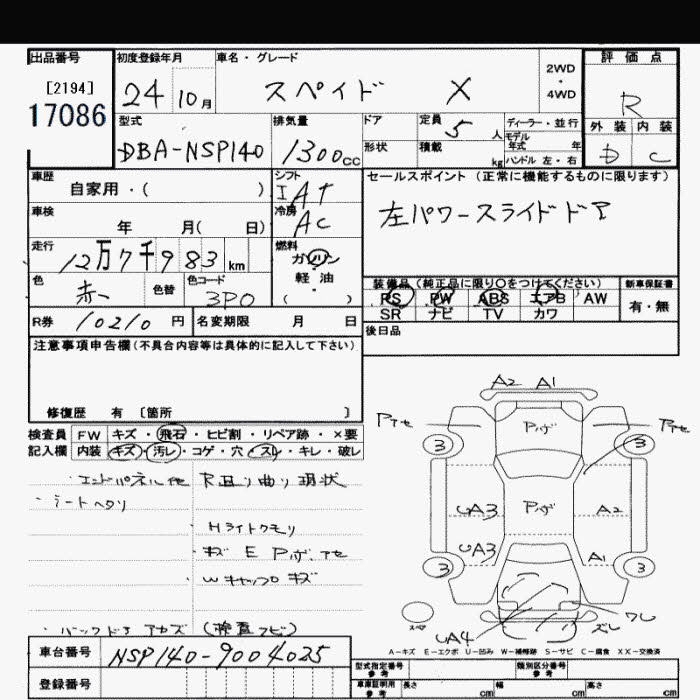 出品番号
[2194]
17086
初度登録年月
24 10月
車名・グレード
スペイド X
2WD
・
4WD
評価点
R
外装 内装
D C
型式
DBA-NSP140
排気量
1300cc
ドア
形状
定員
5人
積載
kg
ディーラー・並行
モデル
年式 年
ハンドル 左・右
車歴
自家用・( )
シフト
IAT
車検
年 月( 日)
冷房
AC
セールスポイント (正常に機能するものに限ります)
左パワースライドドア
走行
12万7千983km
燃料
ガソリン
・
軽油
( )
色
赤
色替
色コード
3P0
装備品(純正品に限り○をつけてください)
PS PW ABS エアB AW
SR ナビ TV カワ
新車保証書
有・無
R券 10210円
名変期限 月 日
後日品
注意事項申告欄(不具合内容等は具体的に記入して下さい)
修復歴 有 〔箇所 〕
検査員 FW キズ・飛石・ヒビ割・リペア跡・×要
記入欄 内装 キズ・汚レ・コゲ・穴・スレ・キレ・破レ
エンドパネル他 R廻り曲り 現状
・シートヘタリ
・Hライトクモリ
・キズ E Pハゲ アセ
・Wキャップ キズ
・バックドア アカズ (検査フビ)
A2 A1
Pアセ
Pハゲ
Pアセ
3
3
UA3
Pハゲ
A2
UA3
A1
3
3
スペア
UA4
ワレ
ズレ
A-キズ E-エクボ U-凹み W-補修跡 S-サビ C-腐食 XX-交換済
車台番号
NSP140-9004025
登録番号
型式指定番号
参考
類別区分番号
参考
車庫証明用
参考
長さ cm
幅 cm
高さ cm